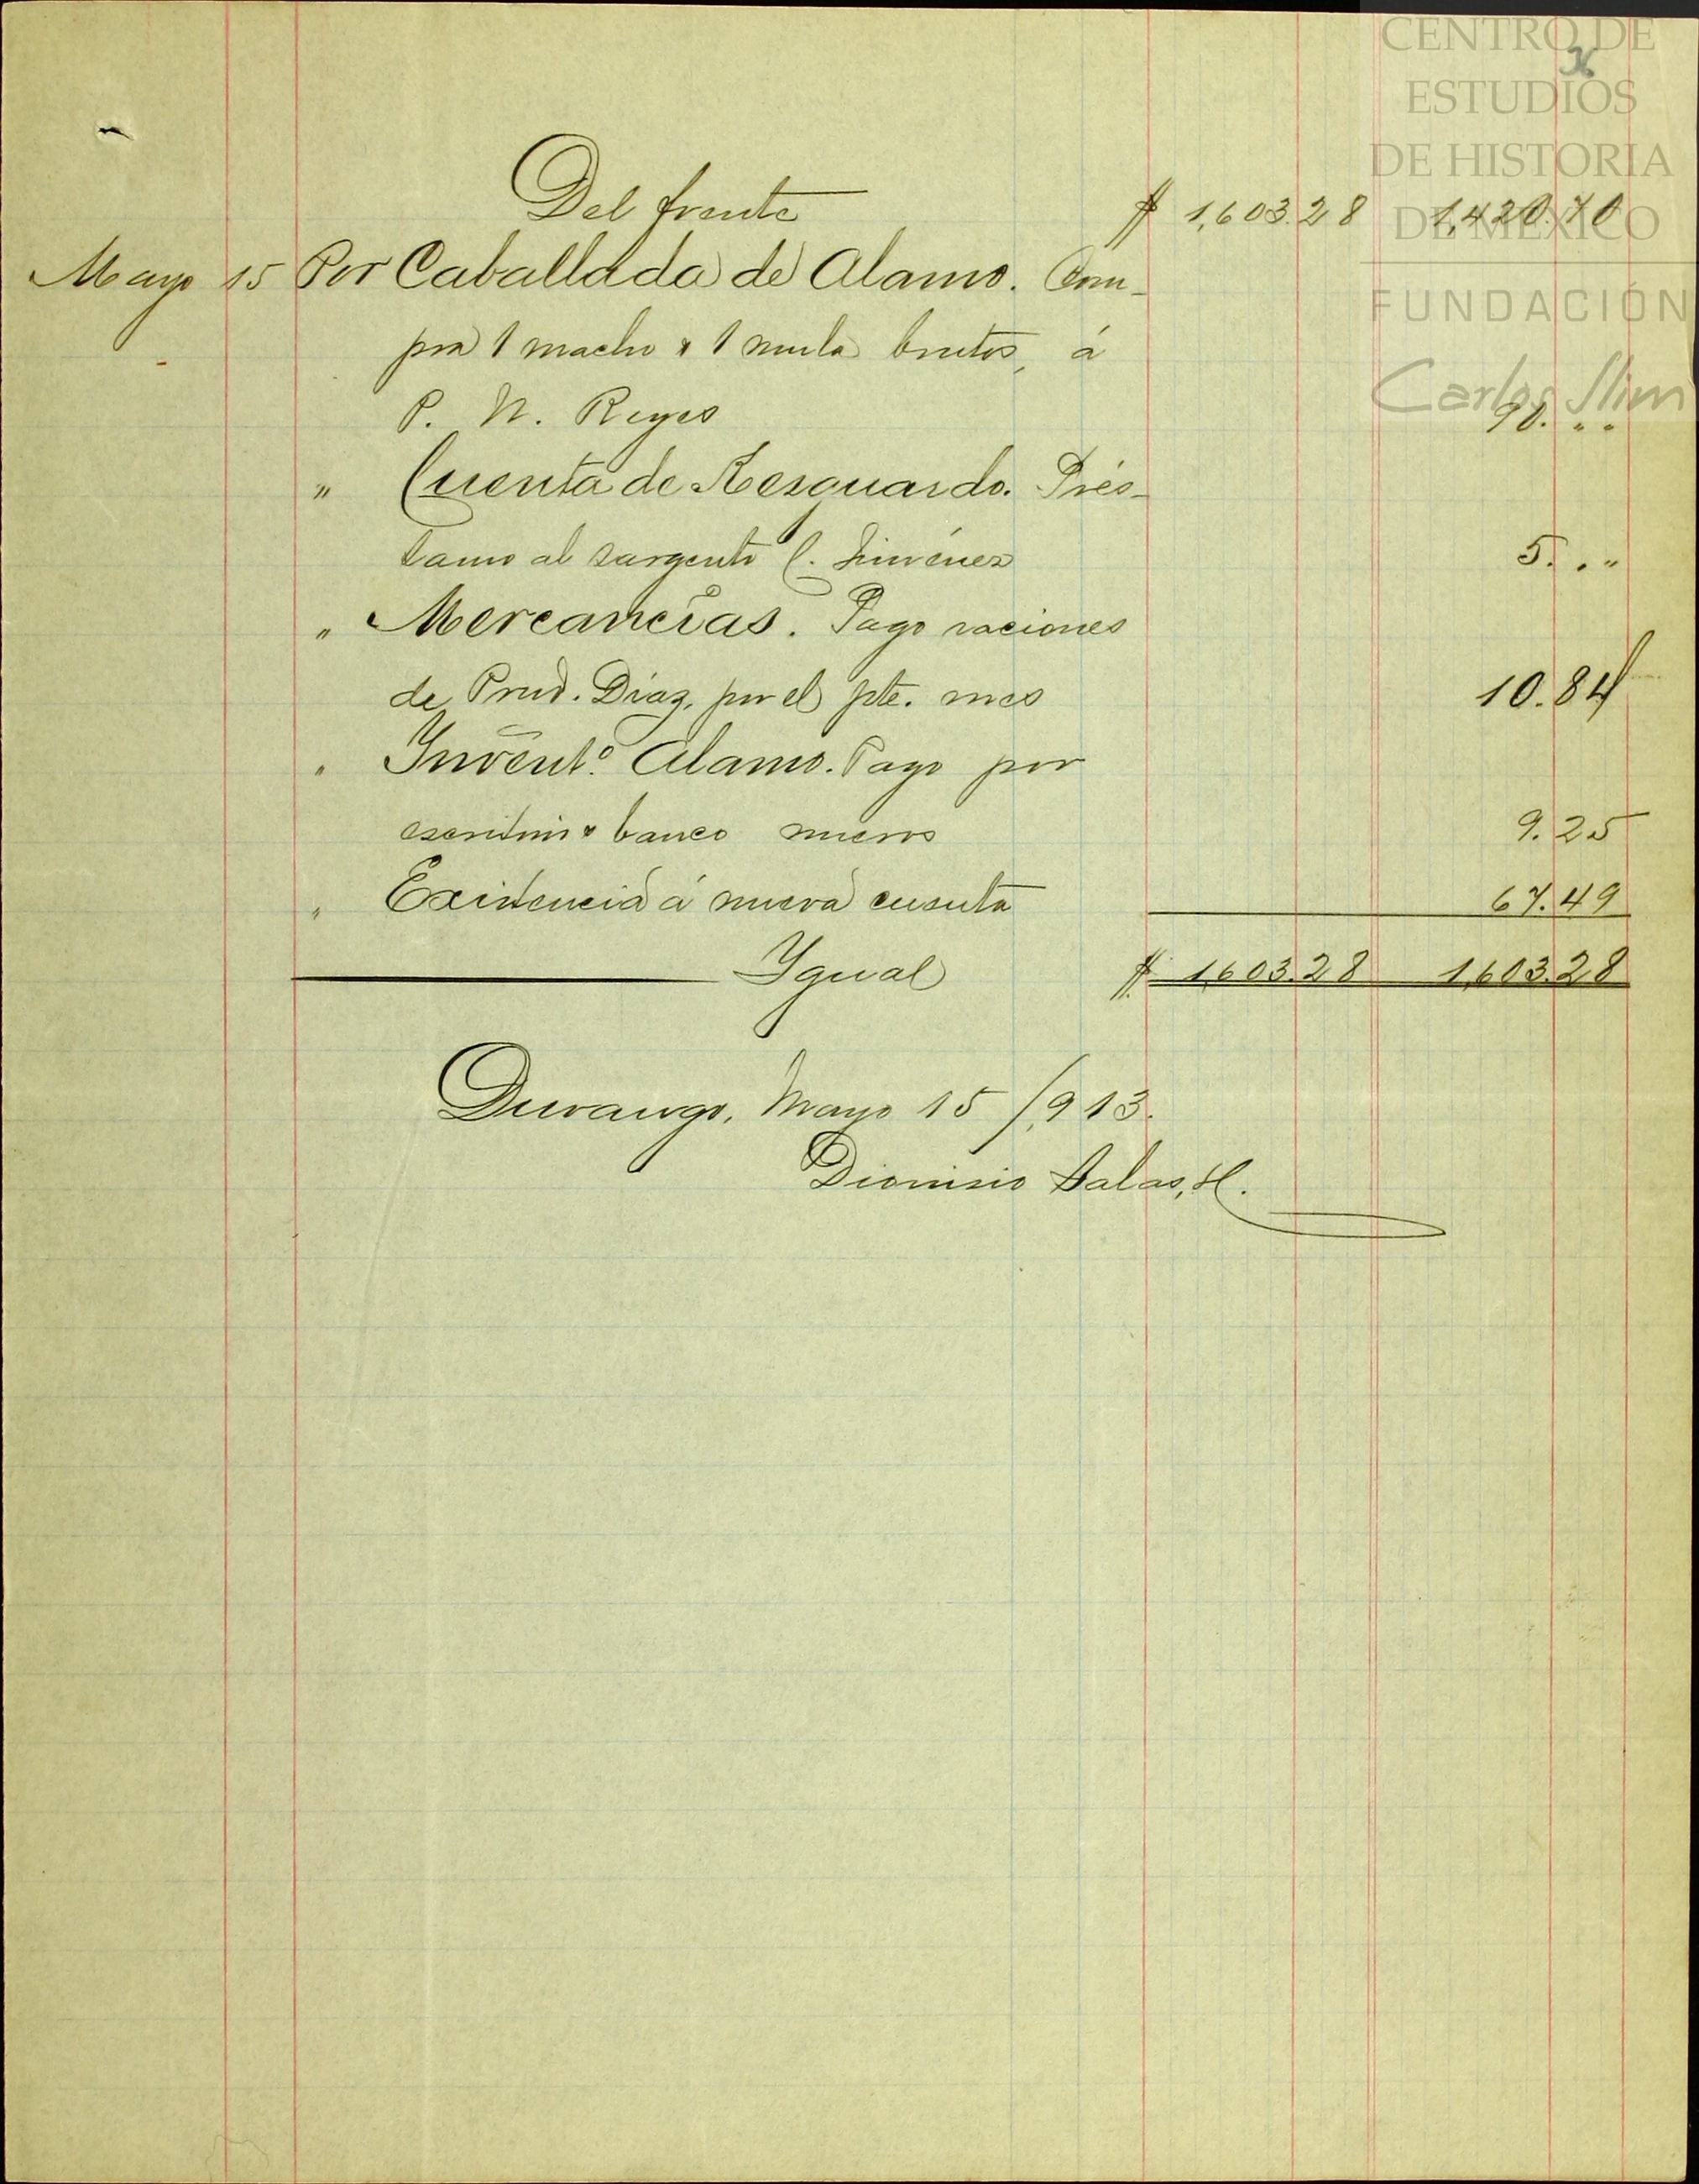 CENTRO DE
ESTUDIOS
DE HISTORIA
DE MÉXICO
FUNDACIÓN
Carlos Slim
Del frente $ 1,603.28 1,420.70
Mayo 15 Por Caballada de Alamo. Com-
pra 1 macho & 1 mula brutos, á
P. N. Reyes 90. " "
" Cuenta de Resguardo. Prés-
tamo al sargento C. Jiménez 5. " "
" Mercancías. Pago raciones
de Prud. Díaz, por el pte. mes 10.84
" Invent.º Alamo. Pago por
escritorio & banco nuevos 9.25
" Existencia á nueva cuenta 67.49
Ygual $ 1,603.28 1,603.28
Durango, Mayo 15/913.
Dionisio Salas, H.